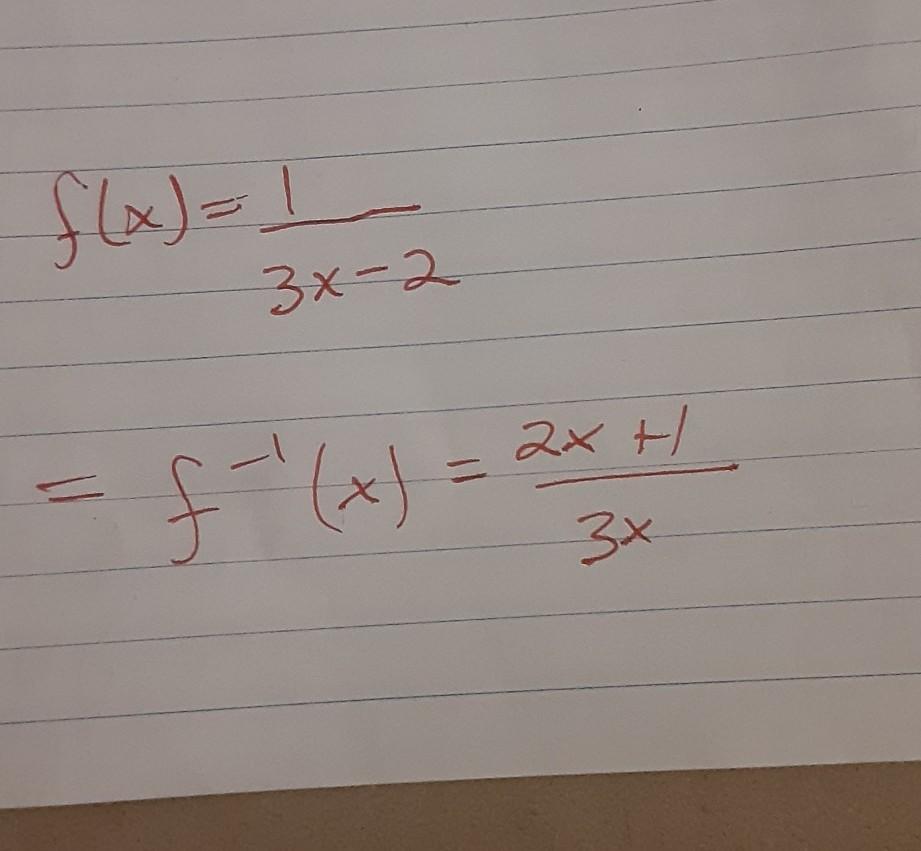 f(x) = 1
3x - 2
= f⁻¹(x) = 2x + 1
3x